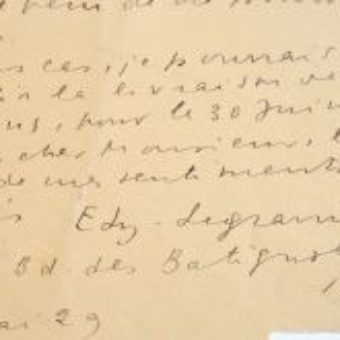 de
ces, je pourrais
la livraison de
, pour le 30 Juin
cher Monsieur, l
de mes sentiments
Edy-Legrand
Bd. des Batignol
29